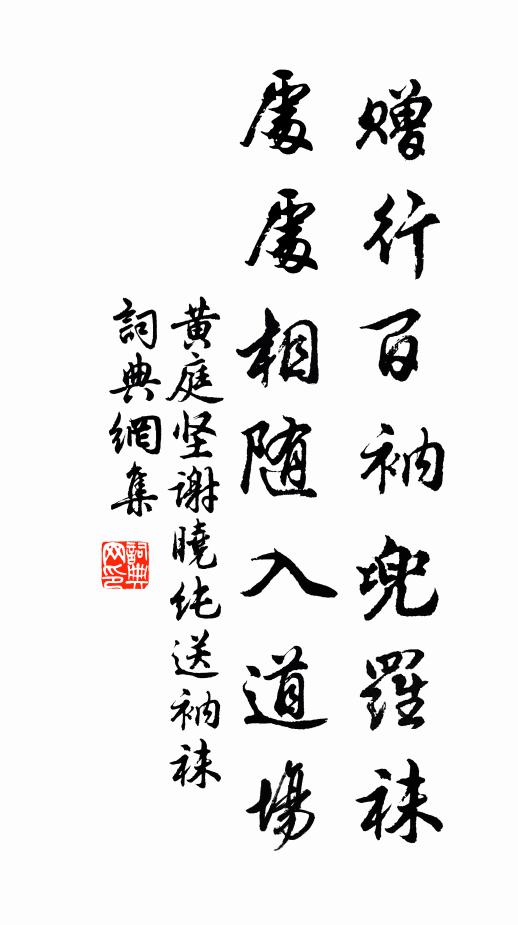 赠行百衲兜羅袜
處處相随入道場
黄庭坚谢曉纯送衲袜
詞典網集
詞典网印